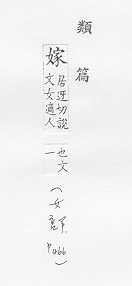 類篇
嫁
居迓切說
文女適人
也文
一
(女部
P466)